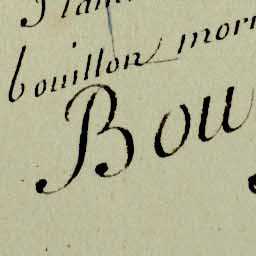 bouillon mor
Bou